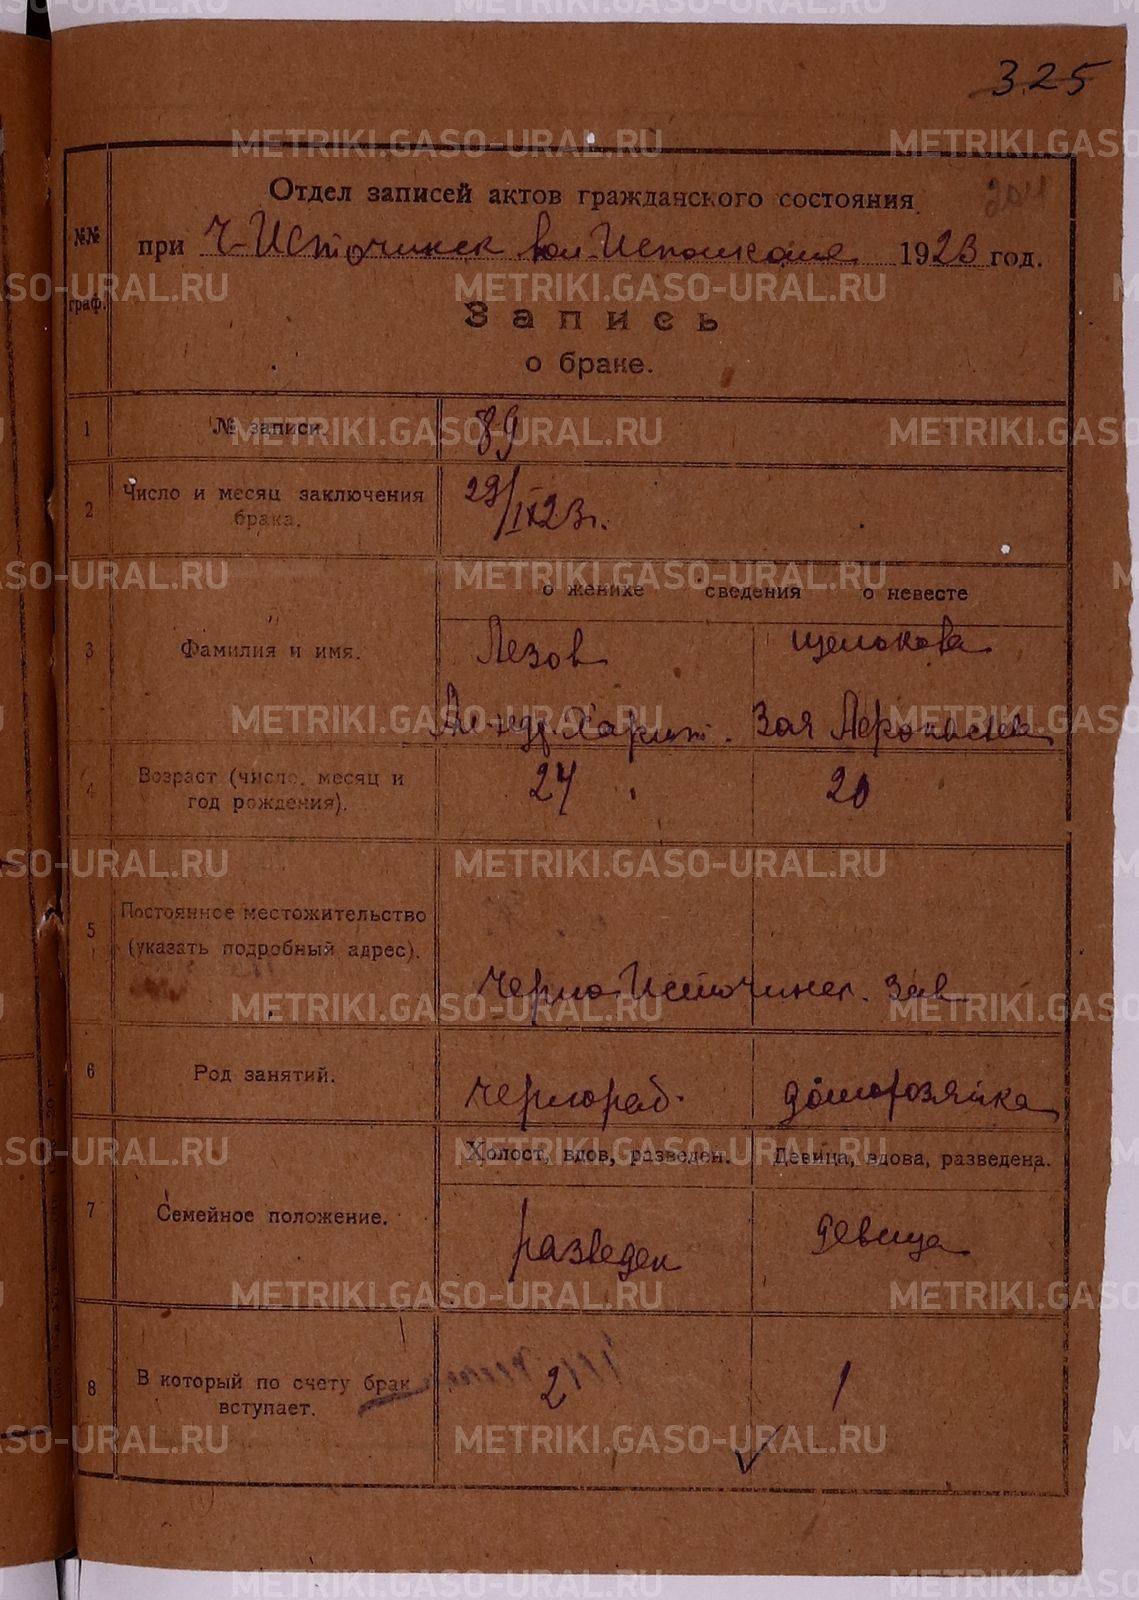 325
204
№№
граф.
Отдел записей актов гражданского состояния
при Ч-Источинск вол-Исполкоме 1923 год.
Запись
о браке.
1 № записи. 89
2 Число и месяц заключения
брака. 29/IX 23 г.
о женихе сведения о невесте
3 Фамилия и имя. Лезов Щелокова
Ал-ндр. Харит. Зоя
4 Возраст (число, месяц и
год рождения). 24 20
5 Постоянное местожительство
(указать подробный адрес).
Черно-Источинск. зав
6 Род занятий. чернораб. домохозяйка
Холост, вдов, разведен. Девица, вдова, разведена.
7 Семейное положение. разведен девица
8 В который по счету брак
вступает. 2 1
METRIKI.GASO-URAL.RU